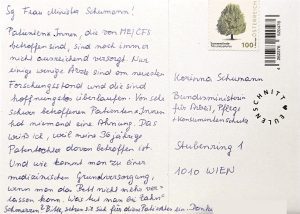 Sg Frau Minista Schumann!
Patient:innen, die von ME/CFS
betroffen sind, sind noch immer
nicht ausreichend versorgt. Nur
einige wenige Ärzte sind am neuesten
Forschungsstand und die sind
hoffnungslos überlaufen. Von sehr
schwer betroffenen Patient:innen
hat niemand eine Ahnung. Das
weiß ich, weil meine 30 jährige
Patentochter davon betroffen ist.
Und wie kommt man zu einer
medizinischen Grundversorgung,
wenn man das Bett nicht mehr ver-
lassen kann. Was tut man bei Zahn-
schmerzen? Bitte setzen sie sich für diese Patienten ein. Danke
ÖSTERREICH
100
Korinna Schumann
Bundesministerin
für Arbeit, Pflege
+ Konsumentenschutz
Stubenring 1
1010 WIEN
EULENSCHNITT